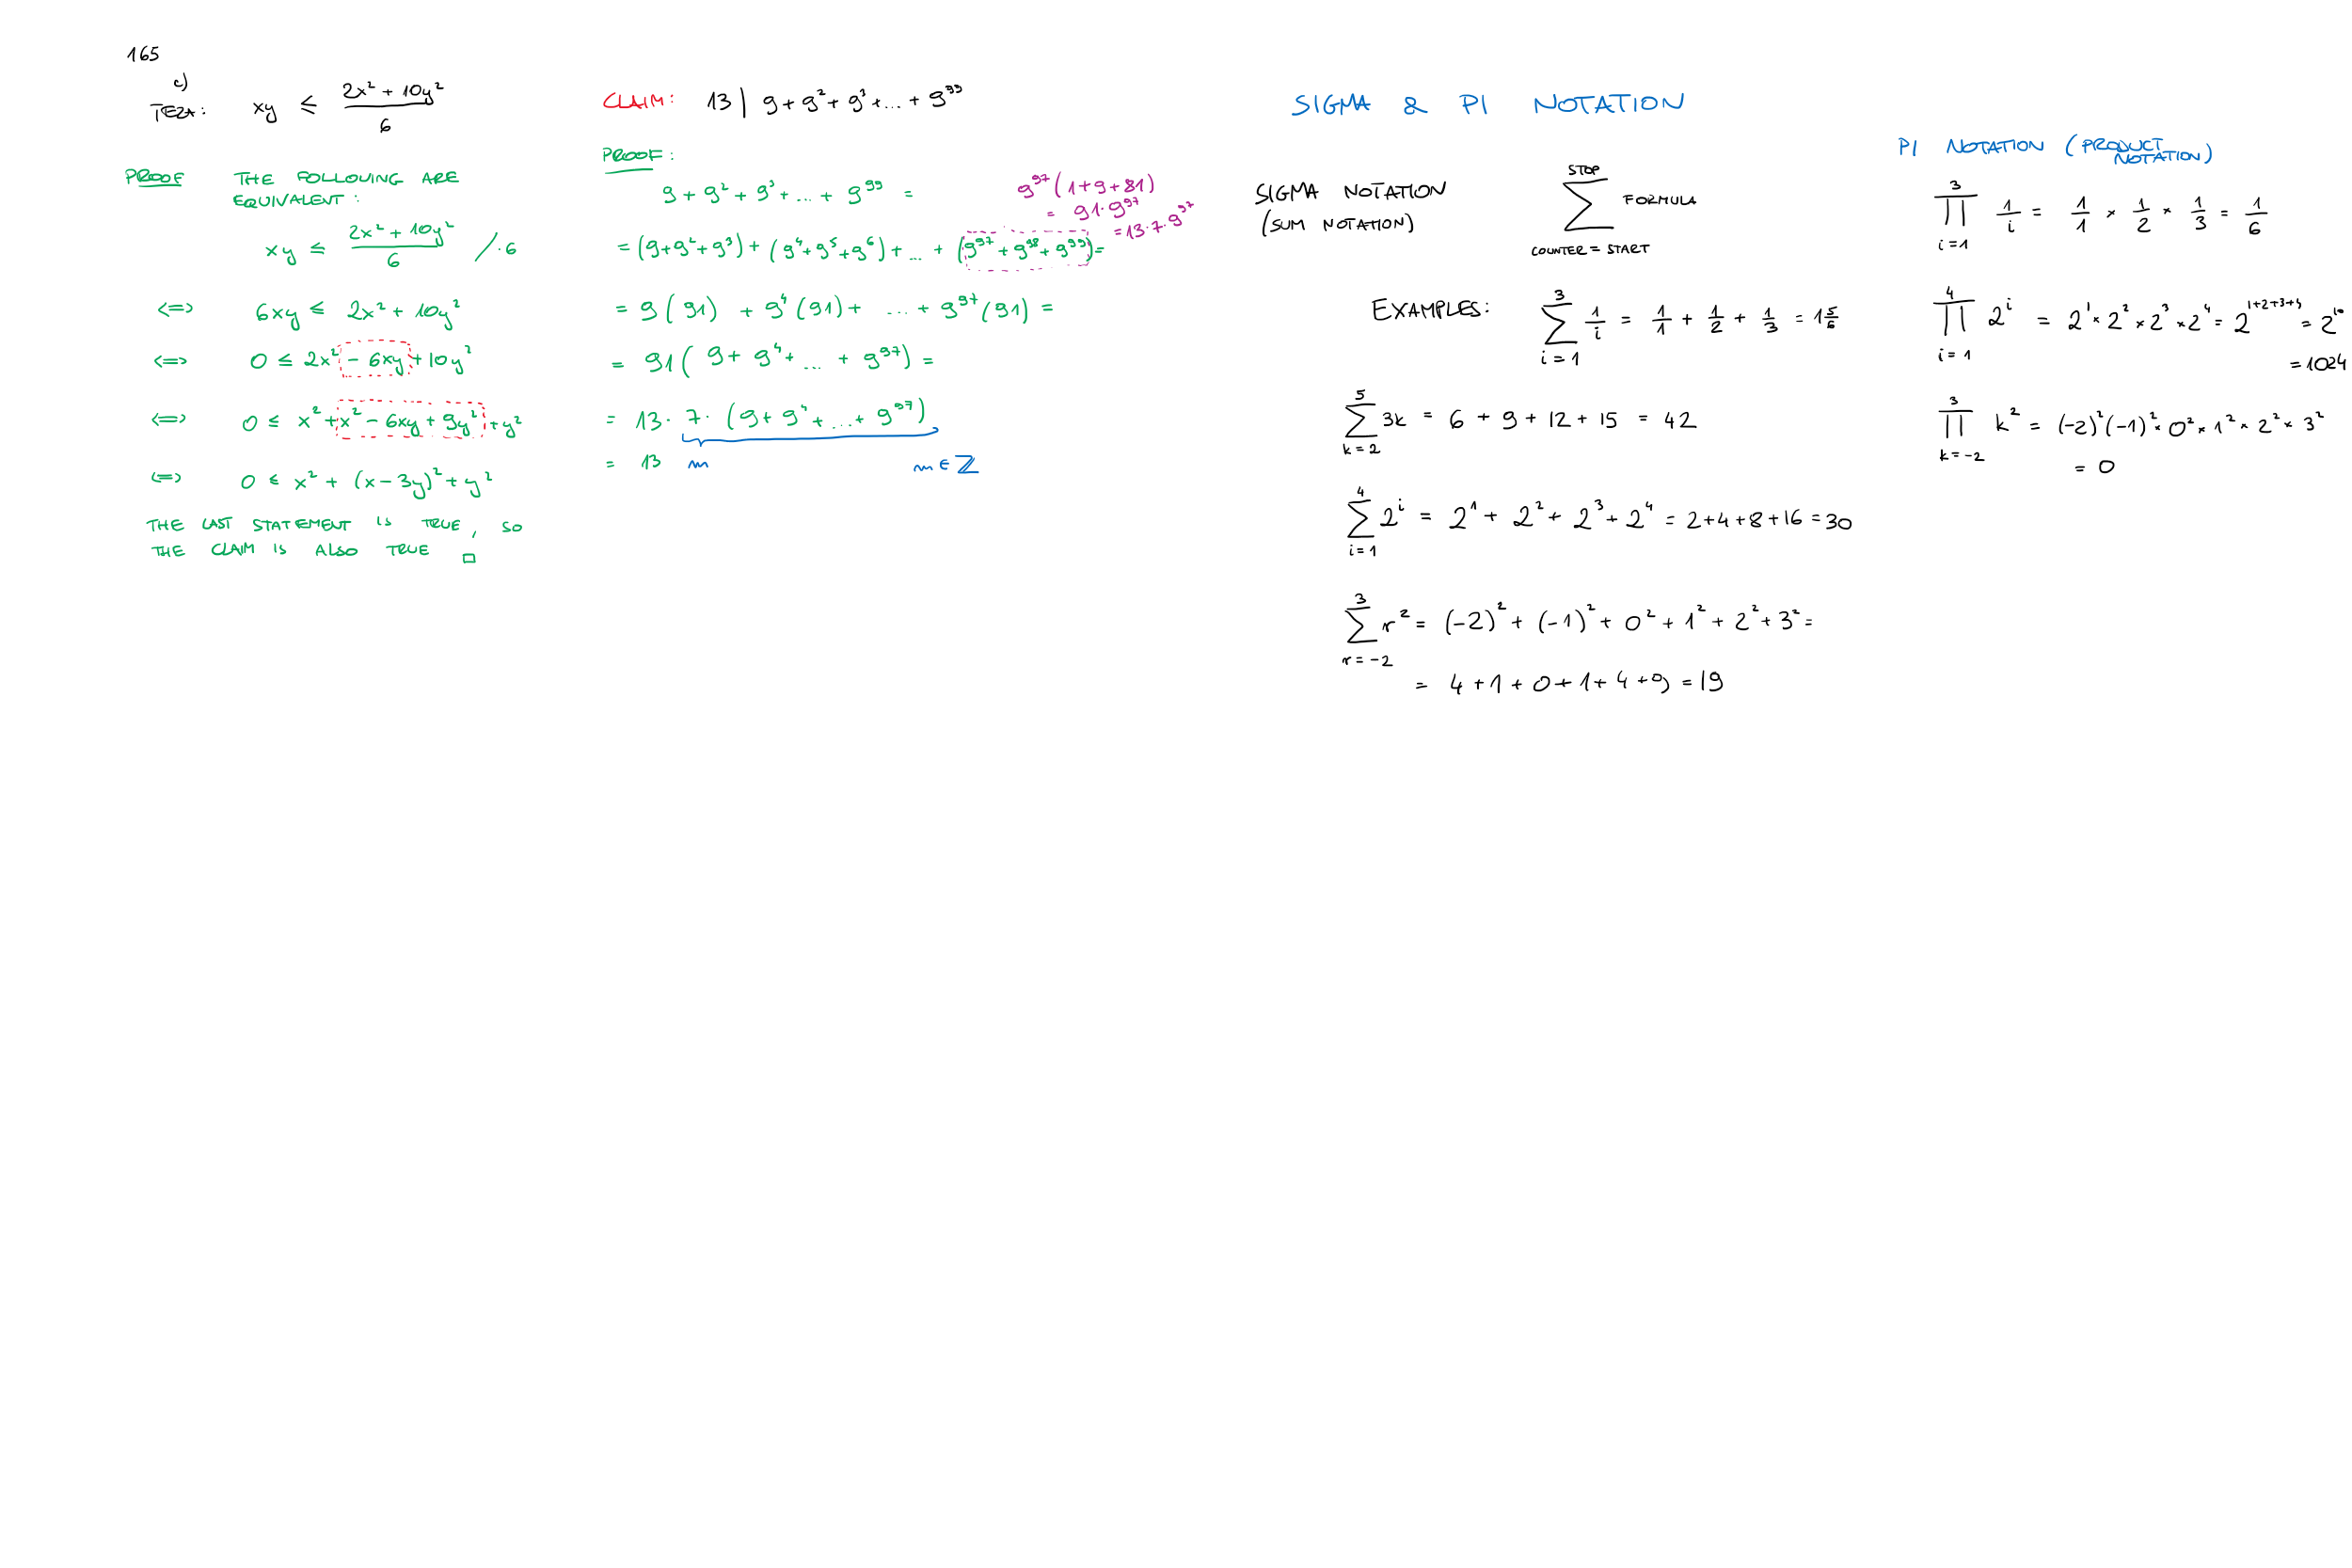 165
c)
TEZA: xy ≤ (2x² + 10y²)/6
PROOF THE FOLLOWING ARE
EQUIVALENT:
xy ≤ (2x² + 10y²)/6 /·6
<=> 6xy ≤ 2x² + 10y²
<=> 0 ≤ 2x² - 6xy + 10y²
<=> 0 ≤ x² + x² - 6xy + 9y² + y²
<=> 0 ≤ x² + (x - 3y)² + y²
THE LAST STATEMENT IS TRUE, SO
THE CLAIM IS ALSO TRUE □
CLAIM: 13 | 9 + 9² + 9³ + ... + 9⁹⁹
PROOF:
9 + 9² + 9³ + ... + 9⁹⁹ =
9⁹⁷(1+9+81)
= 91·9⁹⁷
= 13·7·9⁹⁷
= (9+9²+9³) + (9⁴+9⁵+9⁶) + ... + (9⁹⁷+9⁹⁸+9⁹⁹) =
= 9(91) + 9⁴(91) + ... + 9⁹⁷(91) =
= 91(9 + 9⁴ + ... + 9⁹⁷) =
= 13·7·(9 + 9⁴ + ... + 9⁹⁷)
= 13 m m ∈ ℤ
SIGMA & PI NOTATION
SIGMA NOTATION
(SUM NOTATION)
STOP
∑ FORMULA
COUNTER = START
EXAMPLES: ∑_{i=1}^{3} 1/i = 1/1 + 1/2 + 1/3 = 1 5/6
∑_{k=2}^{5} 3k = 6 + 9 + 12 + 15 = 42
∑_{i=1}^{4} 2^i = 2¹ + 2² + 2³ + 2⁴ = 2+4+8+16 = 30
∑_{r=-2}^{3} r² = (-2)² + (-1)² + 0² + 1² + 2² + 3² =
= 4 + 1 + 0 + 1 + 4 + 9 = 19
PI NOTATION (PRODUCT
NOTATION)
∏_{i=1}^{3} 1/i = 1/1 × 1/2 × 1/3 = 1/6
∏_{i=1}^{4} 2^i = 2¹ × 2² × 2³ × 2⁴ = 2^{1+2+3+4} = 2¹⁰
= 1024
∏_{k=-2}^{3} k² = (-2)²(-1)² × 0² × 1² × 2² × 3²
= 0